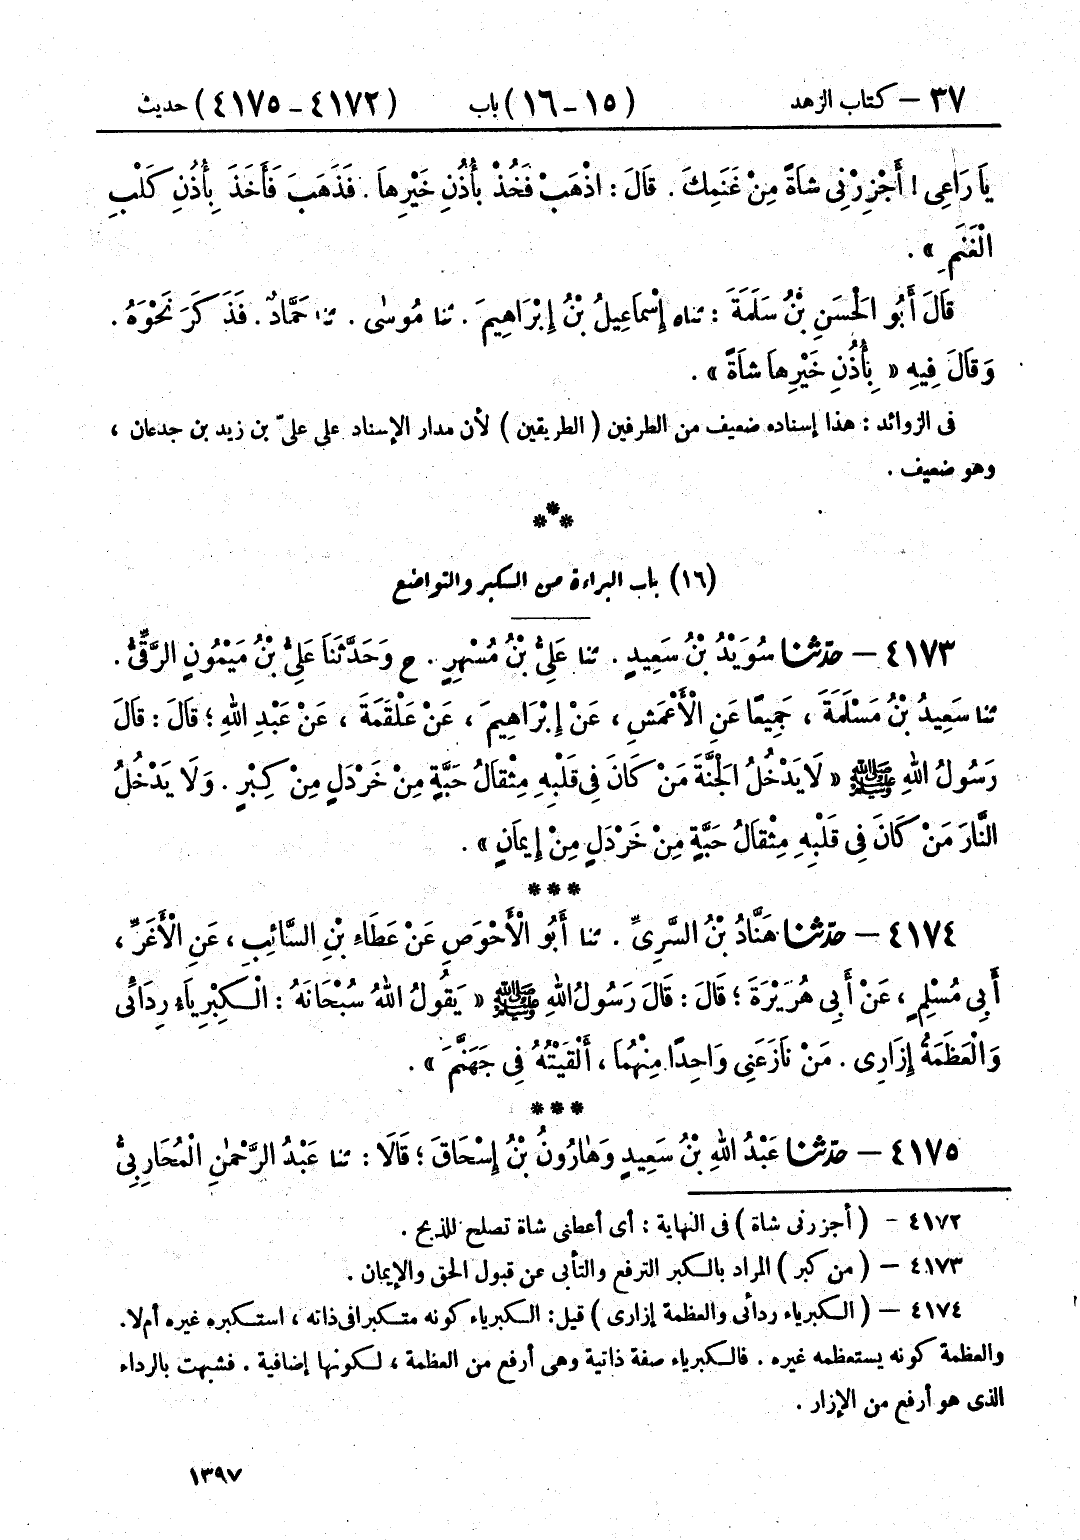 ٣٧ – كتاب الزهد (١٥ – ١٦) باب (٤١٧٢ – ٤١٧٥) حديث
يَا رَاعِى ! أَجْزِرْنِى شاَةً مِنْ غَنَمِكَ . قاَلَ : اذْهَبْ فَخُذْ بأُذُنِ خَيْرِهاَ . فَذَهَبَ فَأَخَذَ بِأُذُنِ كَلْبِ
الْغَنَمِ » .
قَالَ أَبُو الَحْسَنِ بْنُ سَلَمَةَ : ثناه إِسْمَاعِيلُ بْنُ إِبْرَاهِيمَ . ثنا مُوسٰى . ثنا حَمَّادٌ . فَذَكَرَ نَحْوَهُ .
وَقَالَ فِيهِ « بِأُذُنِ خَيْرِهاَ شاَةً » .
فى الزوائد : هذا إسناده ضعيف من الطرفين ( الطريقين ) لأن مدار الإسناد على علىّ بن زيد بن جدعان ،
وهو ضعيف .
***
(١٦) باب البراءة من الكبر والتواضع
٤١٧٣ – حدّثنا سُوَيْدُ بْنُ سَعِيدٍ . ثنا عَلِىُّ بْنُ مُسْهِرٍ . ح وَحَدَّثَنَا عَلِىُّ بْنُ مَيْمُونٍ الرَّقِّىُّ .
ثنا سَعِيدُ بْنُ مَسْلَمَةَ ، جَمِيعًا عَنِ الْأَعْمَشِ ، عَنْ إِبْرَاهِيمَ ، عَنْ عَلْقَمَةَ ، عَنْ عَبْدِ اللهِ ؛ قاَلَ : قاَلَ
رَسُولُ اللهِ ﷺ « لَا يَدْخُلُ الَجْنَّةَ مَنْ كَانَ فِى قَلْبِهِ مِثْقاَلُ حَبَّةٍ مِنْ خَرْدَلٍ مِنْ كِبْرٍ . وَلَا يَدْخُلُ
النَّارَ مَنْ كَانَ فِى قَلْبِهِ مِثْقاَلُ حَبَّةٍ مِنْ خَرْدَلٍ مِنْ إِيمَانٍ » .
***
٤١٧٤ – حدّثنا هَنَّادُ بْنُ السَّرِىِّ . ثنا أَبُو الْأَحْوَصِ عَنْ عَطَاءِ بْنِ السَّائِبِ ، عَنِ الْأَغَرِّ ،
أَبِى مُسْلِمٍ ، عَنْ أَبِى هُرَيْرَةَ ؛ قاَلَ : قاَلَ رَسُولُ اللهِ ﷺ « يَقُولُ اللهُ سُبْحَانَهُ : الْكِبْرِيَاءُ رِدَائِى
وَالْعَظَمَةُ إِزَارِى . مَنْ نَازَعَنِى وَاحِدًا مِنْهُمَا ، أَلْقَيْتُهُ فِى جَهَنَّمَ » .
***
٤١٧٥ – حدّثنا عَبْدُ اللهِ بْنُ سَعِيدٍ وَهَارُونُ بْنُ إِسْحَاقَ ؛ قَالَا : ثنا عَبْدُ الرَّحْمٰنِ الْمُحَارِبِىُّ
٤١٧٢ – ( أجزرنى شاة ) فى النهاية : أى أعطنى شاة تصلح للذبح .
٤١٧٣ – ( من كبر ) المراد بالكبر الترفع والتأبى عن قبول الحق والإيمان .
٤١٧٤ – ( الكبرياء ردائى والعظمة إزارى ) قيل : الكبرياء كونه متكبرا فى ذاته ، استكبره غيره أم لا .
والعظمة كونه يستعظمه غيره . فالكبرياء صفة ذاتية وهى أرفع من العظمة ، لكونها إضافية . فشبهت بالرداء
الذى هو أرفع من الإزار .
١٣٩٧